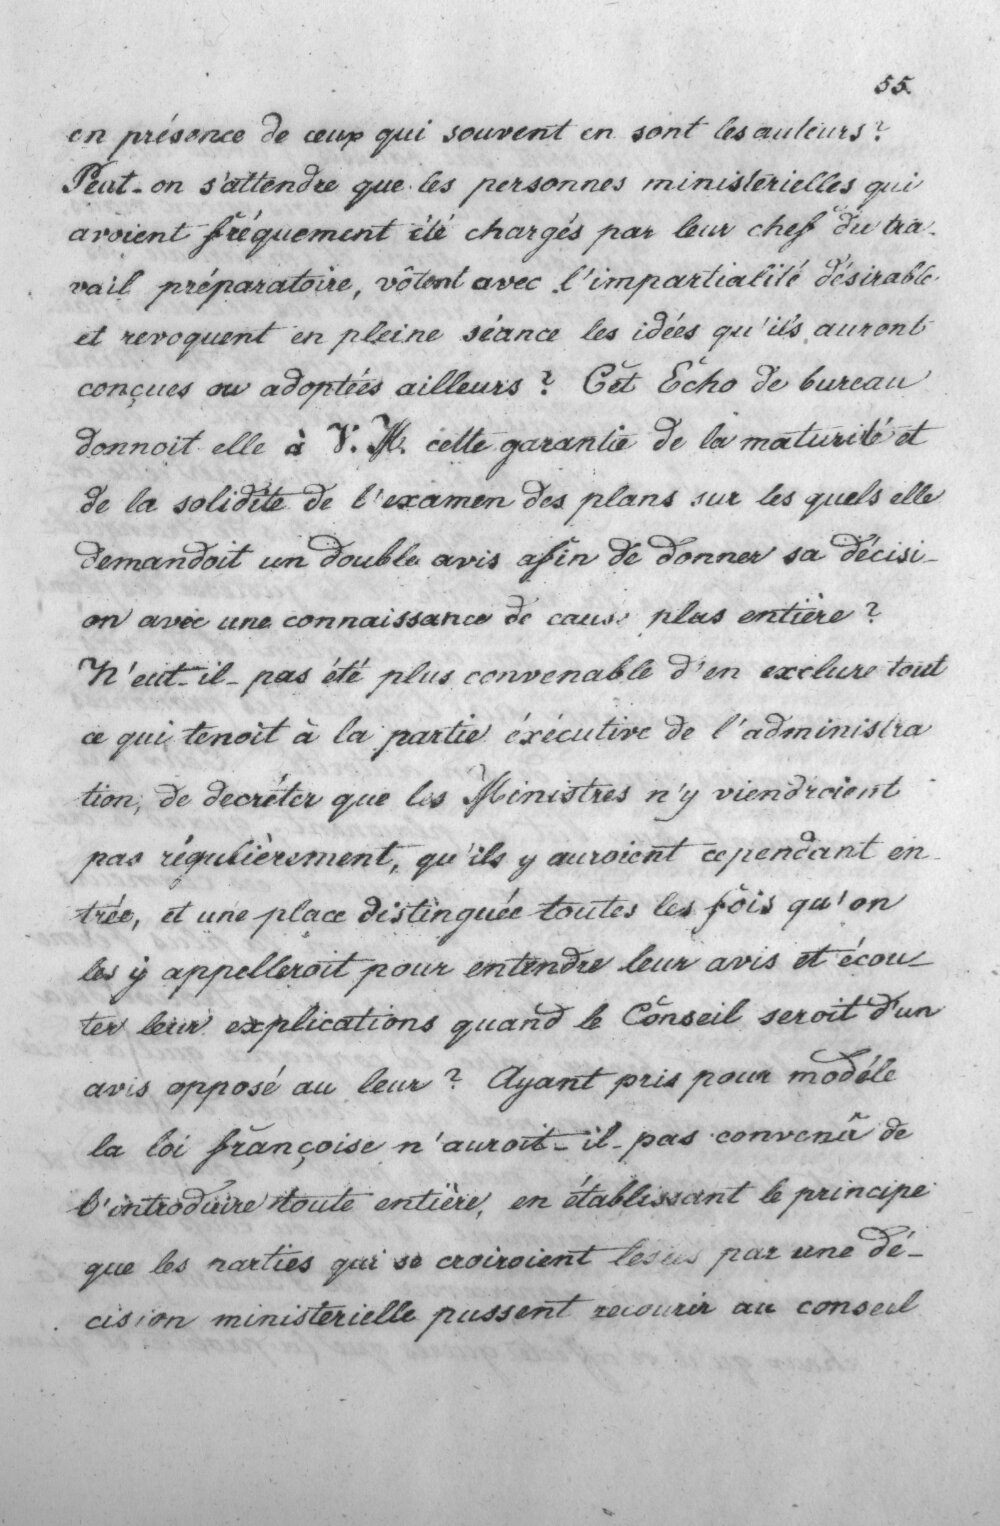 55.
en présence de ceux qui souvent en sont les auteurs?
Peut-on s'attendre que les personnes ministérielles qui
avoient fréquement été chargés par leur chef du tra-
vail préparatoire, vôtent avec l'impartialité désirable
et revoquent en pleine séance les idées qu'ils auront
conçues ou adoptées ailleurs? Cet Echo de bureau
donnoit elle à V. M. cette garantie de la maturité et
de la solidité de l'examen des plans sur les quels elle
demandoit un double avis afin de donner sa décisi-
on avec une connaissance de cause plus entière?
N'eut-il-pas été plus convenable d'en exclure tout
ce qui tenoit à la partie éxécutive de l'administra
tion, de decréter que les Ministres n'y viendroient
pas régulièrement, qu'ils y auroient cependant en-
trée, et une place distinguée toutes les fois qu'on
les y appelleroit pour entendre leur avis et écou-
ter leur explications quand le Conseil seroit d'un
avis opposé au leur? Ayant pris pour modéle
la loi françoise n'auroit-il-pas convenir de
l'introduire toute entière, en établissant le principe
que les parties qui se croiroient lesées par une dé-
cision ministerielle pussent recourir au conseil